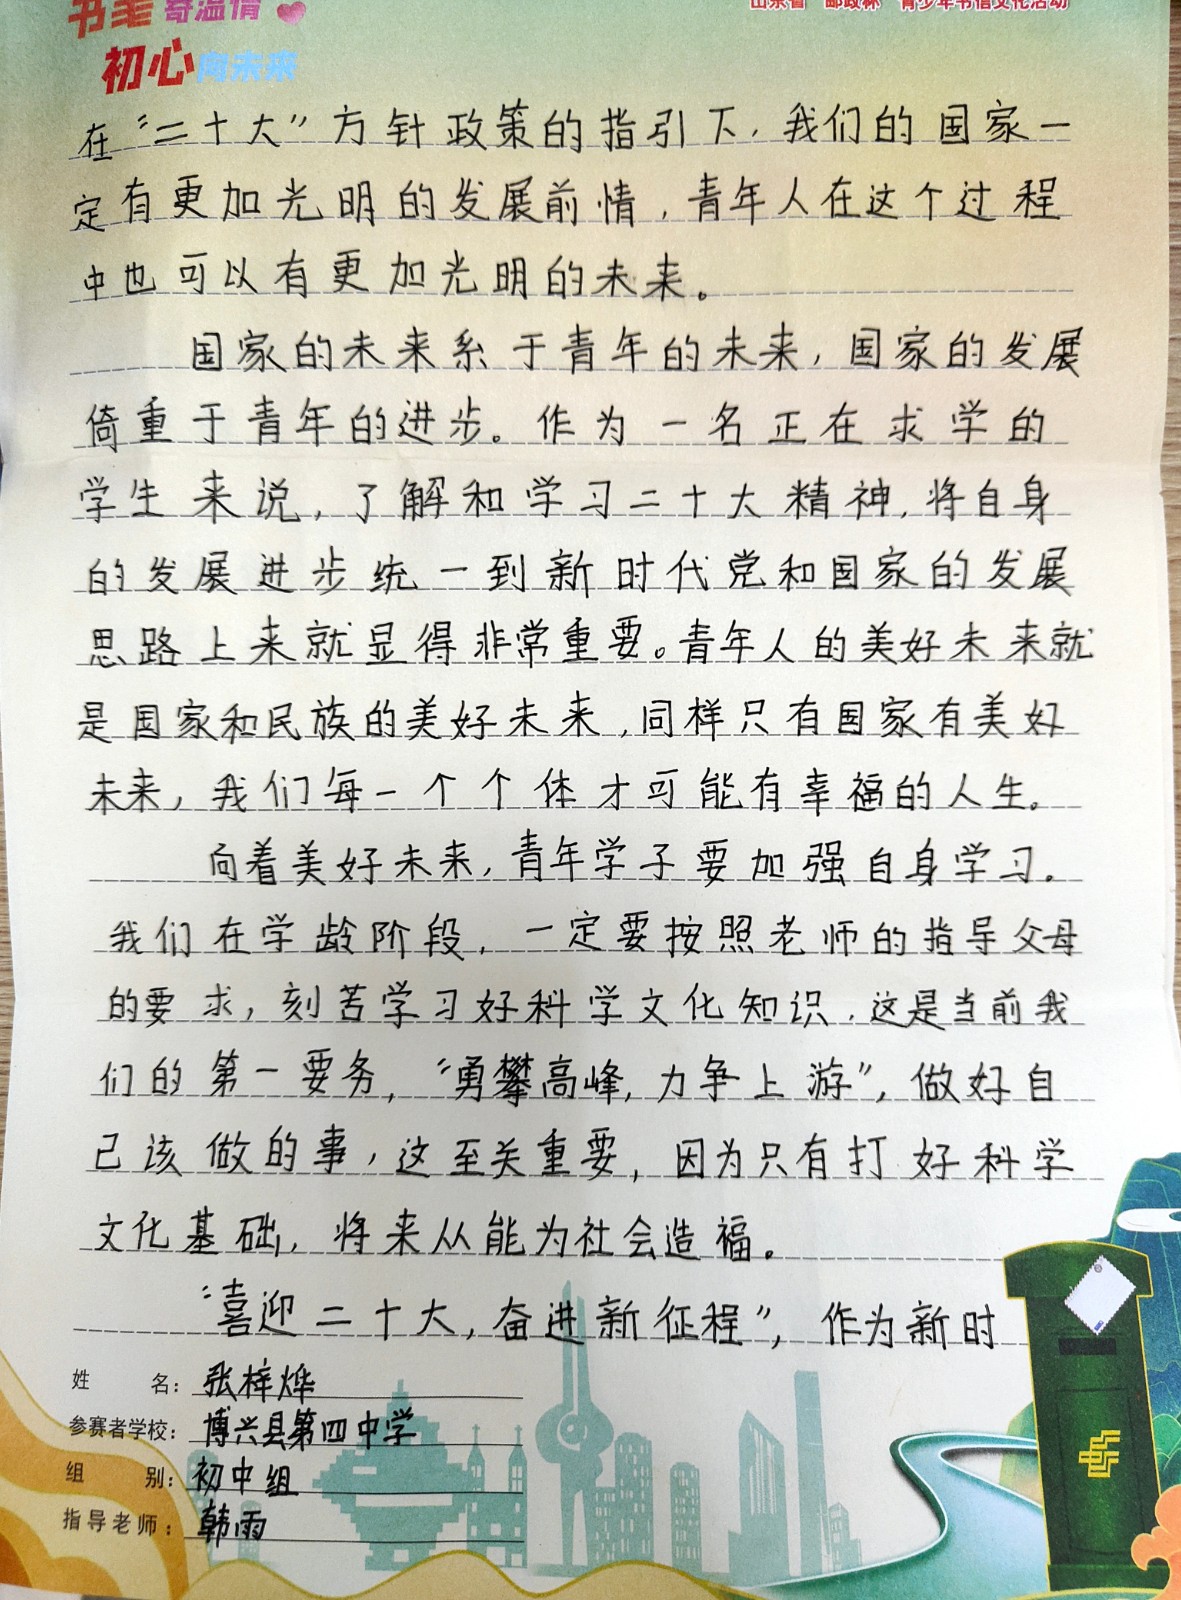 书笔寄温情
山东省“邮政杯”青少年书信文化活动
初心向未来
在“二十大”方针政策的指引下，我们的国家一
定有更加光明的发展前情，青年人在这个过程
中也可以有更加光明的未来。
国家的未来系于青年的未来，国家的发展
倚重于青年的进步。作为一名正在求学的
学生来说，了解和学习二十大精神，将自身
的发展进步统一到新时代党和国家的发展
思路上来就显得非常重要。青年人的美好未来就
是国家和民族的美好未来，同样只有国家有美好
未来，我们每一个个体才可能有幸福的人生。
向着美好未来，青年学子要加强自身学习。
我们在学龄阶段，一定要按照老师的指导父母
的要求，刻苦学习好科学文化知识，这是当前我
们的第一要务，“勇攀高峰，力争上游”，做好自
己该做的事，这至关重要，因为只有打好科学
文化基础，将来从能为社会造福。
“喜迎二十大，奋进新征程”，作为新时
姓名：张梓烨
参赛者学校：博兴县第四中学
组别：初中组
指导老师：韩雨